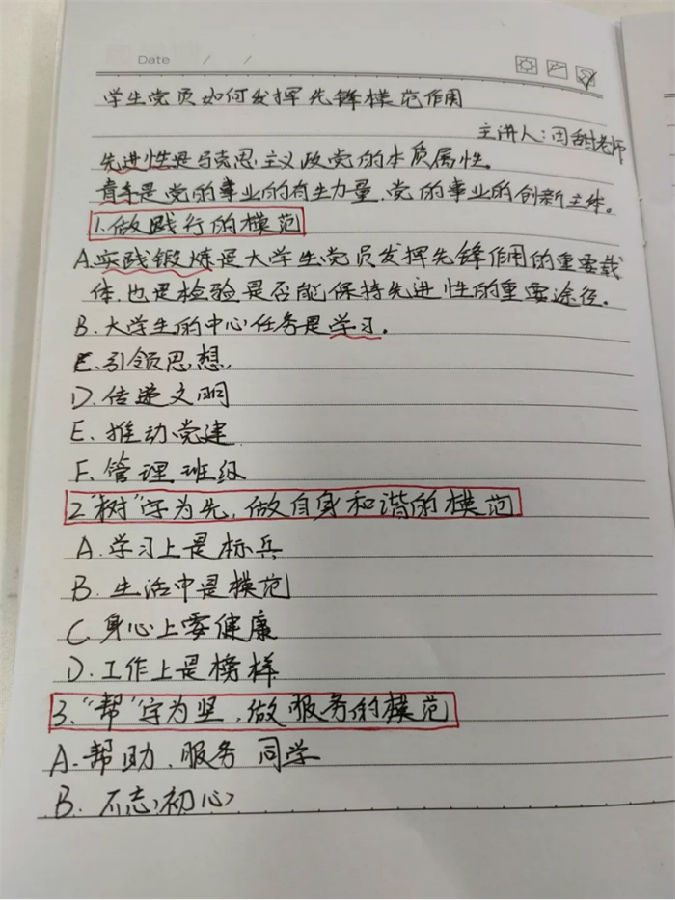 Date / /
学生党员如何发挥先锋模范作用
主讲人:田甜老师
先进性是马克思主义政党的本质属性。
青年是党的事业的有生力量,党的事业的创新主体。
1.做践行的模范
A.实践锻炼是大学生党员发挥先锋作用的重要载
体,也是检验是否能保持先进性的重要途径。
B.大学生的中心任务是学习。
C.引领思想,
D.传递文明
E.推动党建
F.管理班级
2."树"字为先,做自身和谐的模范
A.学习上是标兵
B.生活中是模范
C.身心上要健康
D.工作上是榜样
3."帮"字为坚,做服务的模范
A.帮助、服务同学
B.不忘初心